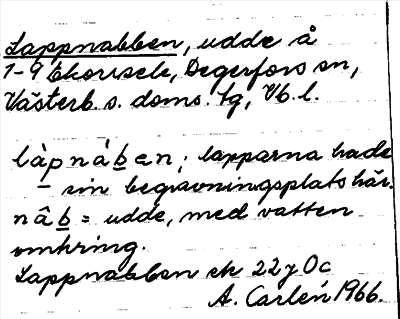 Lappnabben, udde å
1-9 Ekorrsele, Degerfors sn,
Västerb. s. doms. tg, Vb. l.
làpnàben; lapparna hade
– sin begravningsplats här.
nâb = udde, med vatten
omkring.
Lappnabben ek 22 y 0c
A. Carlén 1966.